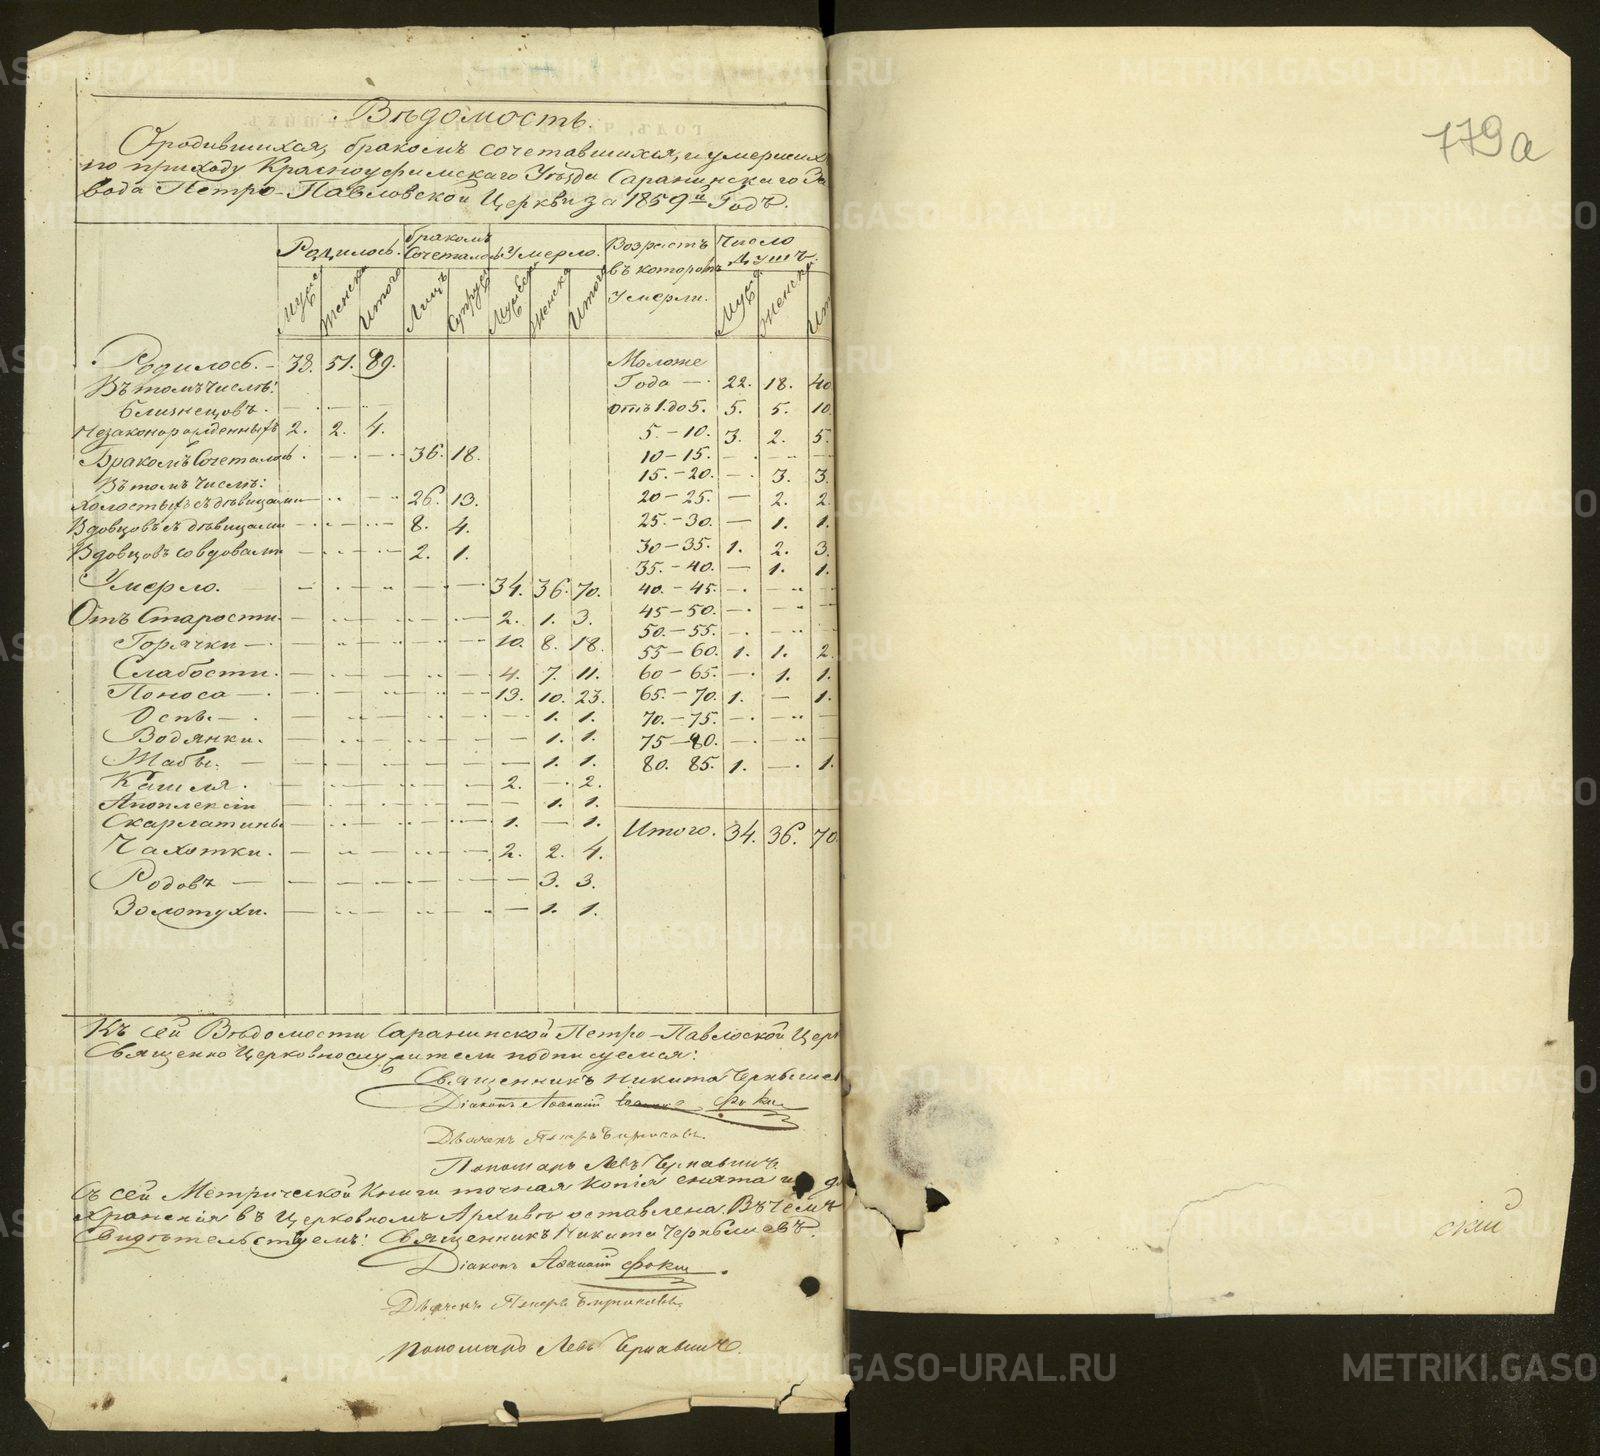 Вѣдомость.
О родившихся, бракомъ сочетавшихся, и умершихъ
по приходу Красноуфимскаго Уѣзда Саранинскаго За
вода Петро-Павловской Церкви за 1859й Годъ.
Родилось. Бракомъ Сочеталось Умерло. Возрастъ въ которомъ Умерли. Число Душъ.
Мужес Женска Итого Лицъ Супруж Мужеска Женска Итого Мужес Женска Ит
Родилось. — 38. 51. 89. Моложе
Въ томъ числѣ: Года — 22. 18. 40
Близнецовъ. от 1. до 5. 5. 5. 10.
Незаконорожденныхъ 2. 2. 4. 5. – 10. 3. 2. 5.
Бракомъ Сочеталось. 36. 18. 10 – 15.
Въ томъ числѣ: 15. – 20. — 3. 3.
Холостыхъ съ дѣвицами 26. 13. 20 – 25. — 2. 2.
Вдовцовъ съ дѣвицами 8. 4. 25. – 30. — 1. 1.
Вдовцовъ со вдовами 2. 1. 30 – 35. 1. 2. 3.
35. – 40. — 1. 1.
Умерло. 34. 36. 70. 40. – 45.
Отъ Старости. 2. 1. 3. 45 – 50.
50. – 55.
Горячки — 10. 8. 18. 55 – 60. 1. 1. 2.
Слабости. 4. 7. 11. 60 – 65. — 1. 1.
Поноса — 13. 10. 23. 65. – 70. 1. — 1.
Оспы. — 1. 1. 70. – 75.
Водянки. — 1. 1. 75 – 80.
Жабы. — 1. 1. 80. 85. 1. — 1.
Кашля. 2. — 2.
Апоплексіи — 1. 1.
Скарлатины 1. — 1. Итого. 34. 36. 70.
Чахотки. 2. 2. 4.
Родовъ — 3. 3.
Золотухи. — 1. 1.
Къ сей Вѣдомости Саранинской Петро-Павлоской Церк
Священно Церковнослужители подписуемся:
Священникъ Никита Чернышев
Діаконъ Аѳанасій Фокин
Дьячекъ Петръ Бирюковъ.
Пономарь Левъ Чернавинъ
Съ сей Метрической Книги точная копія снята и д
Храненія въ Церковномъ Архивѣ оставлена. Въ чемъ
Свидѣтельствуемъ: Священникъ Никита Чернышевъ.
Діаконъ Аѳанасій Фокин
Дьячекъ Петръ Бирюковъ.
Пономарь Левъ Чернавинъ.
779а
ский
METRIKI.GASO-URAL.RU